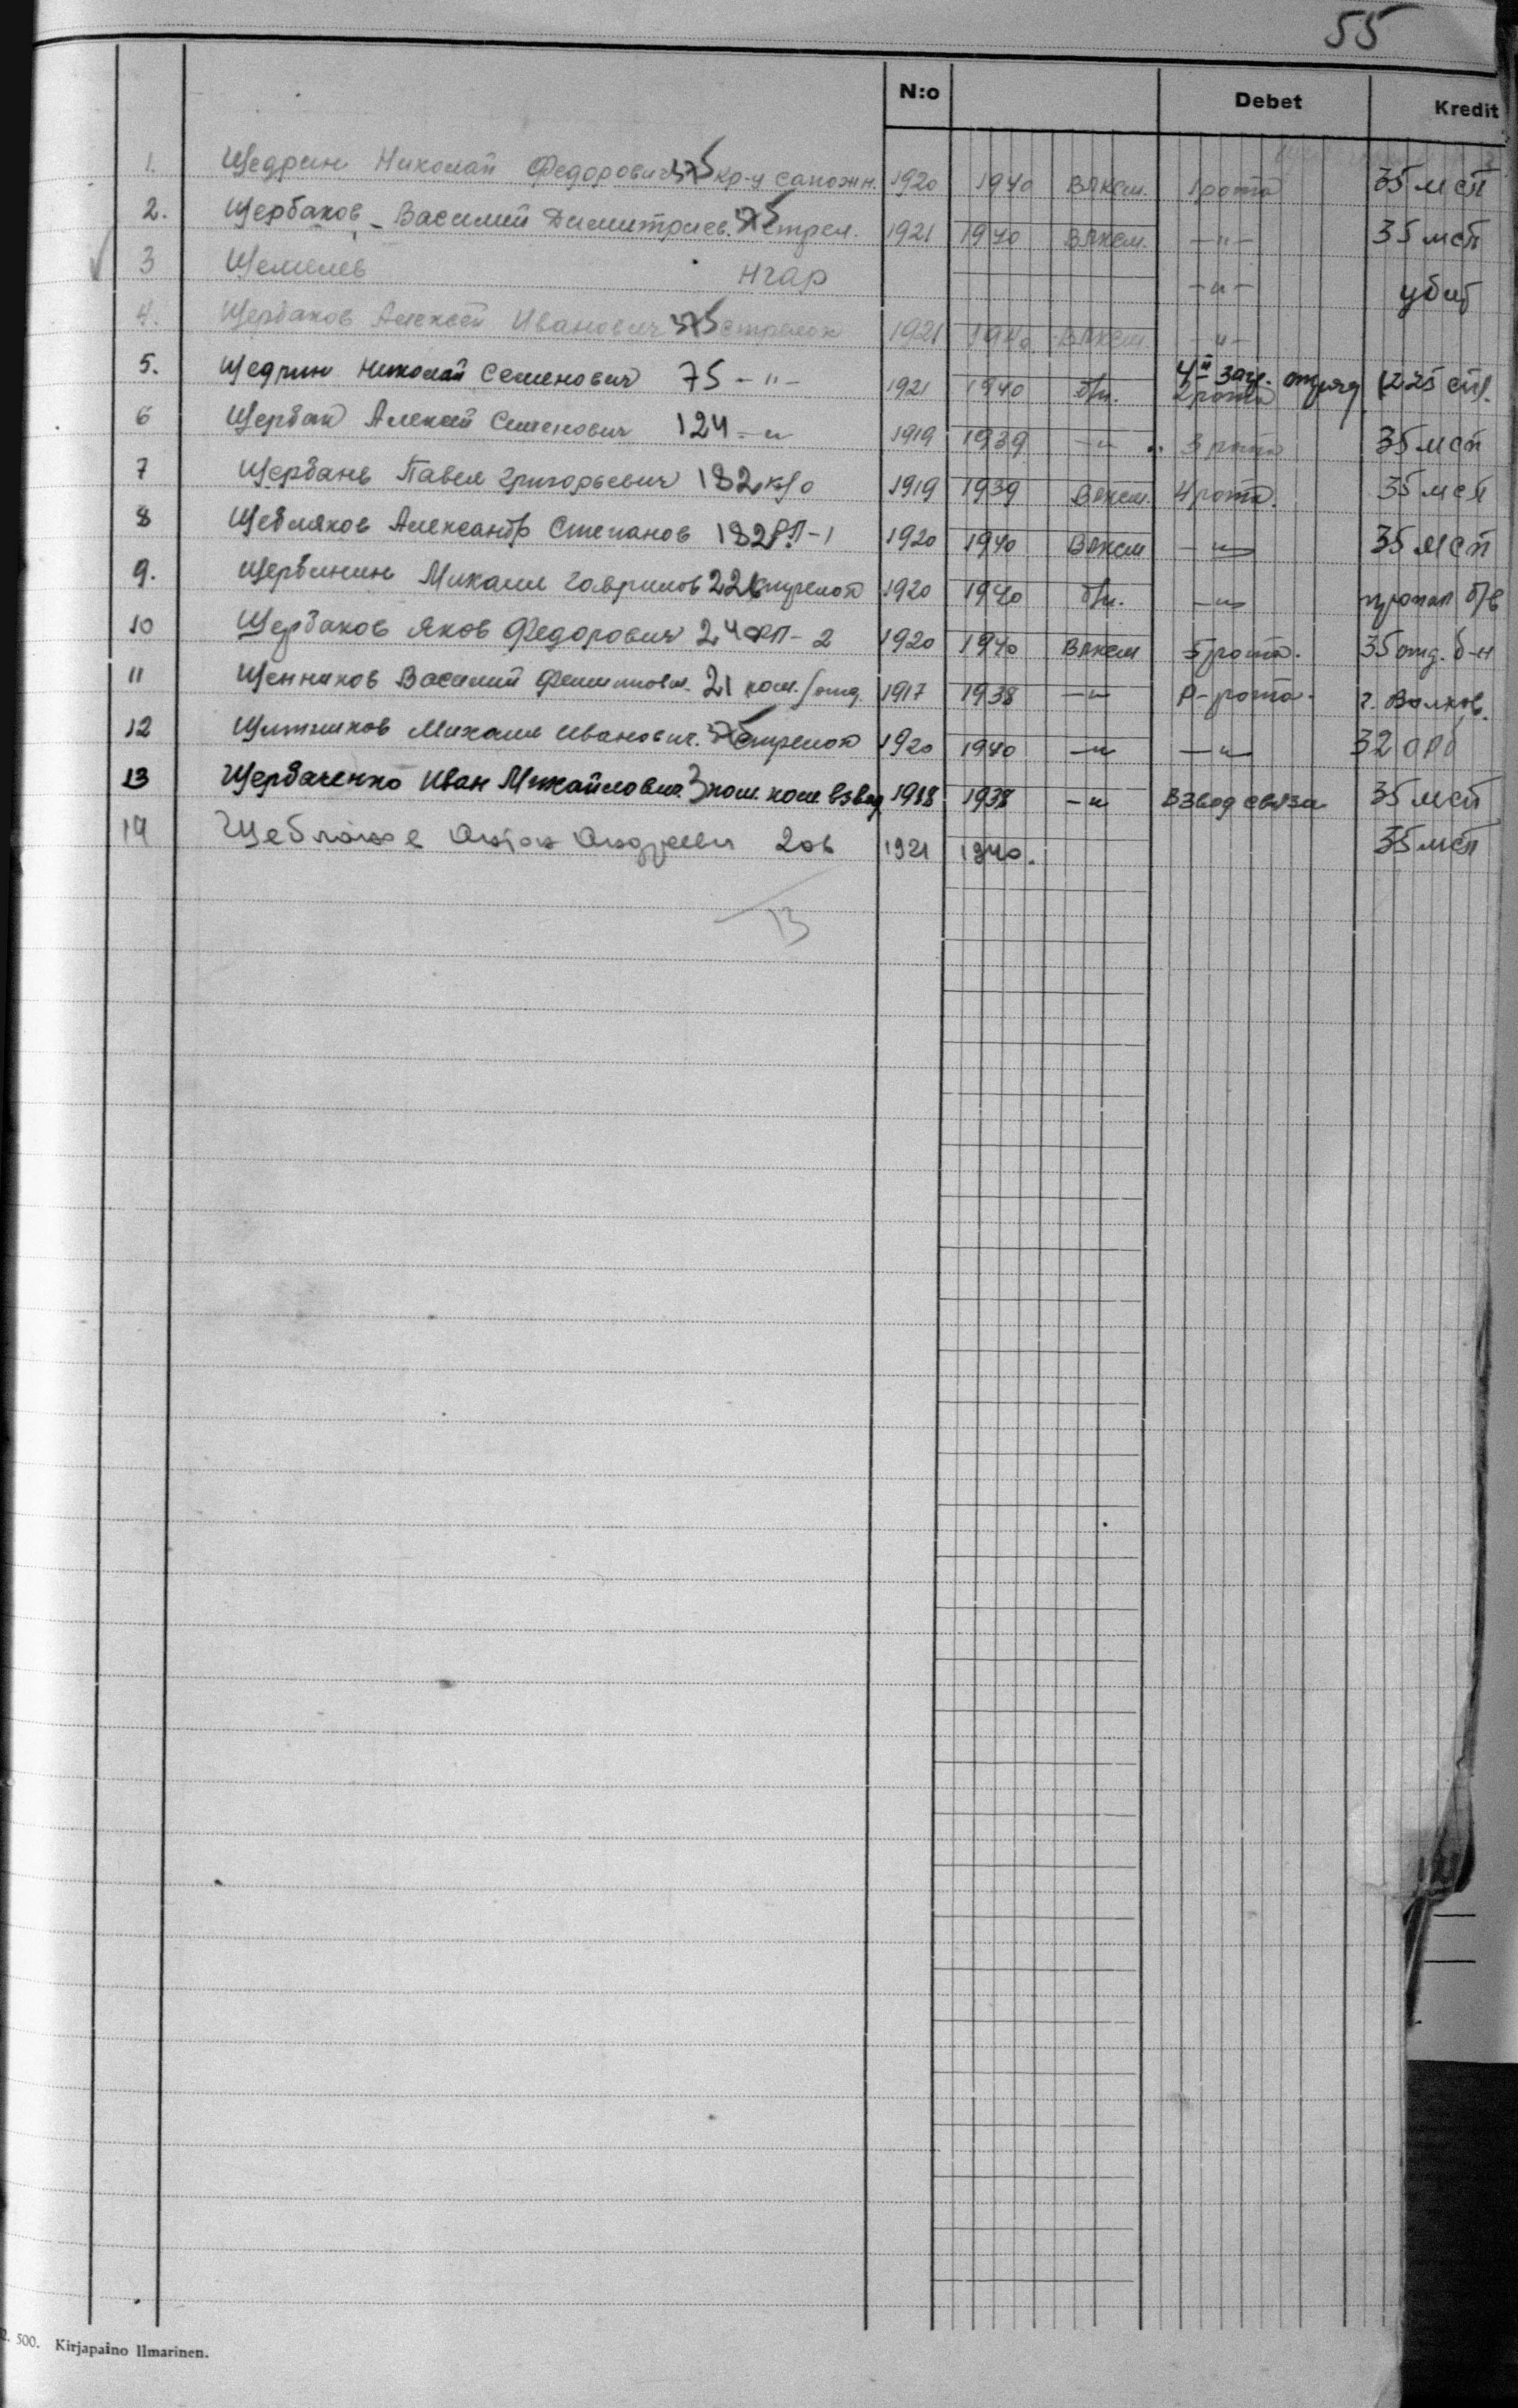 55
N:o Debet Kredit
1. Щедрин Николай Федорович 375 кр-ц сапожн. 1920 1940 Влксм. 1 рота 35 мсп
2. Щербаков Василий Димитриев. 75 стрел. 1921 1940 Влксм. -"- 35 мсп
3 Щемелев -"- убит
4. Щербаков Алексей Иванович 375 стрелок 1921 1940 Влксм. -"-
5. Щедрин Николай Семенович 75 -"- 1921 1940 б/п. 4й загр. отряд 2 рота 1225 сп.
6 Щербак Алексей Семенович 124 -"- 1919 1939 -"- 3 рота 35 мсп
7 Щербань Павел Григорьевич 182 к/о 1919 1939 Влксм. 4 рота. 35 мсп
8 Щебляков Александр Степанов 182 РП-1 1920 1940 Влксм -"- 35 мсп
9. Щербинин Михаил Гаврилов 226 стрелок 1920 1940 б/п. -"- пропал б/в
10 Щербаков Яков Федорович 240 РП-2 1920 1940 Влксм 5 рота. 35 отд. б-н
11 Щенников Василий 21 ком./отд. 1917 1938 -"- Р-рота. г. Волхов.
12 Щитников Михаил Иванович. 375 стрелок 1920 1940 -"- -"- 32
13 Щербаченко Иван Михайлович. 3 пом. ком. взвод 1918 1938 -"- Взвод связи 35 мсп
14 206 1921 1940. 35 мсп
13
2. 500. Kirjapaino Ilmarinen.